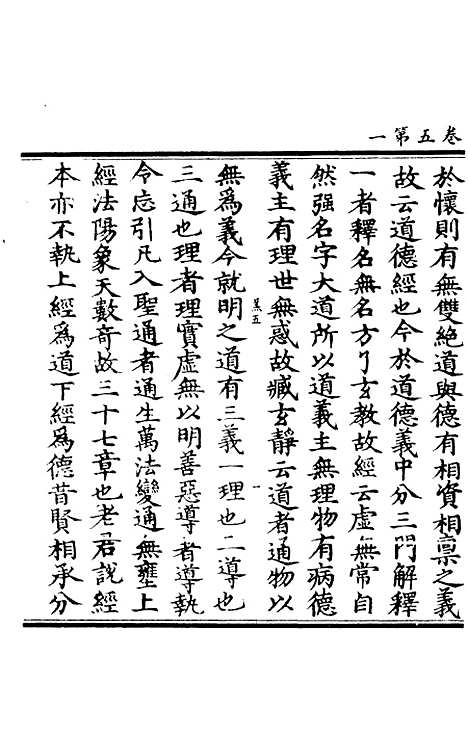 卷五第一
於懷則有無雙絶道與德有相資相稟之義
故云道德經也今於道德義中分三門解釋
一者釋名無名方了玄教故經云虛無常自
然强名字大道所以道義主無理物有病德
義主有理世無惑故臧玄靜云道者通物以
無爲義今就明之道有三義一理也二導也
三通也理者理實虛無以明善惡導者導執
令忘引凡入聖通者通生萬法變通無壅上
經法陽象天數奇故三十七章也老君說經
本亦不執上經爲道下經爲德昔賢相承分